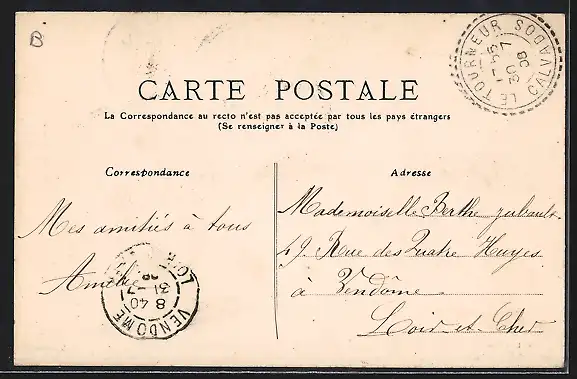 B
LE TOURNEUR CALVADOS
7-55
30 7
08
CARTE POSTALE
La Correspondance au recto n'est pas acceptée par tous les pays étrangers
(Se renseigner à la Poste)
Correspondance
Adresse
Mes amitiés à tous
Amélie
VENDOME
8 40
31-7
08
Mademoiselle Berthe Jubault
49. Rue des Quatre Huyes
à Vendôme
Loir-et-Cher